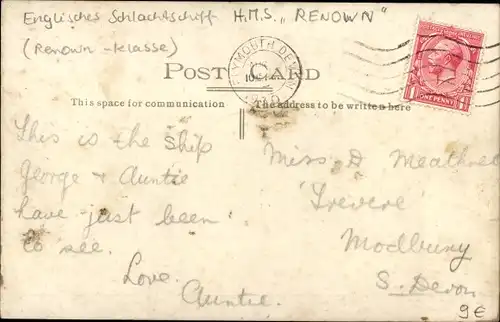 Englisches Schlachtschiff H.M.S. „RENOWN"
(Renown-Klasse)
PLYMOUTH DEVON
POST CARD
This space for communication
The address to be written here
ONE PENNY
This is the ship
George & Auntie
have just been
to see.
Love.
Auntie.
Miss D
'Trevere'
Modbury
S. Devon
9€